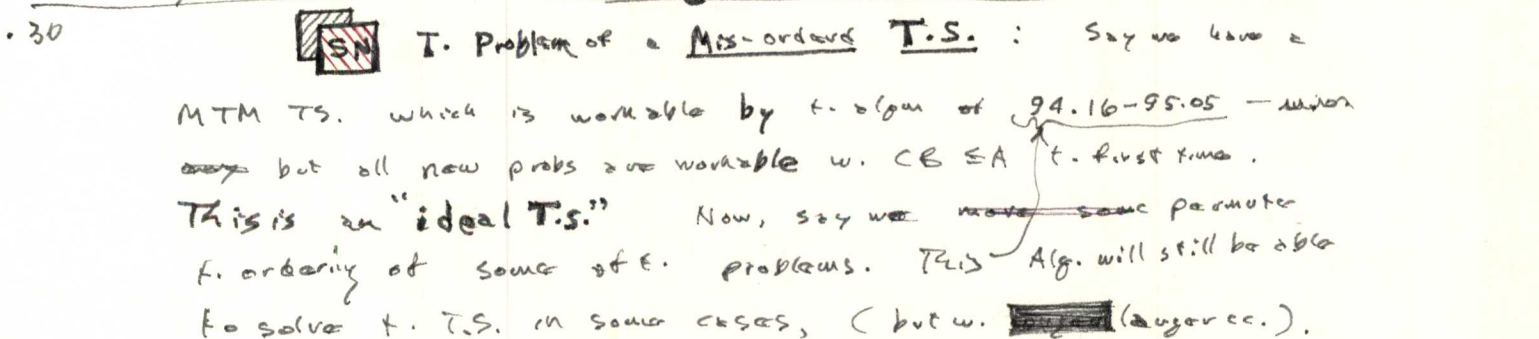 .30 SN T. Problem of a Mis-ordered T.S. : Say we have a
MTM TS. which is workable by t. algm of 94.16-95.05 —
but all new probs are workable w. CB ≤A t. first time.
This is an "ideal T.S." Now, say we permute
t. ordering of some of t. problems. This Alg. will still be able
to solve t. T.S. in some cases, (but w. larger cc.).